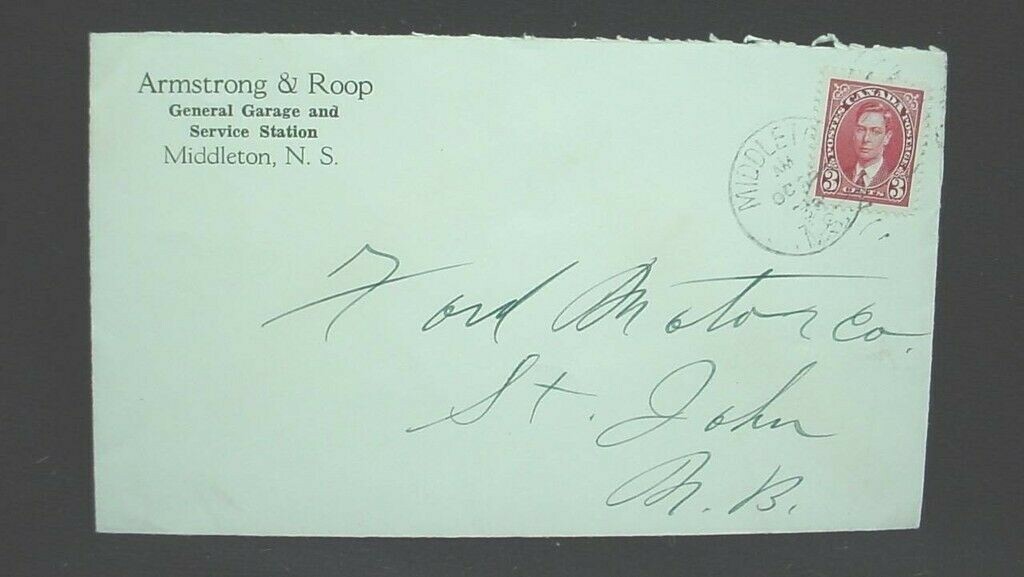 Armstrong & Roop
General Garage and
Service Station
Middleton, N. S.
POSTES CANADA POSTAGE
3 CENTS 3
MIDDLETO
AM
OC
Ford Motor Co.
St. John
N. B.